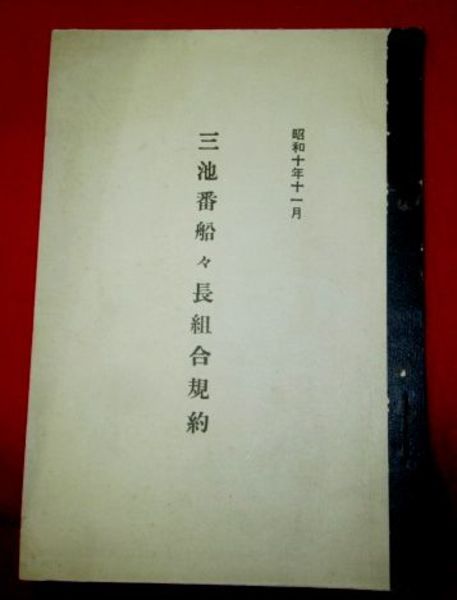 昭和十年十一月
三池番船々長組合規約